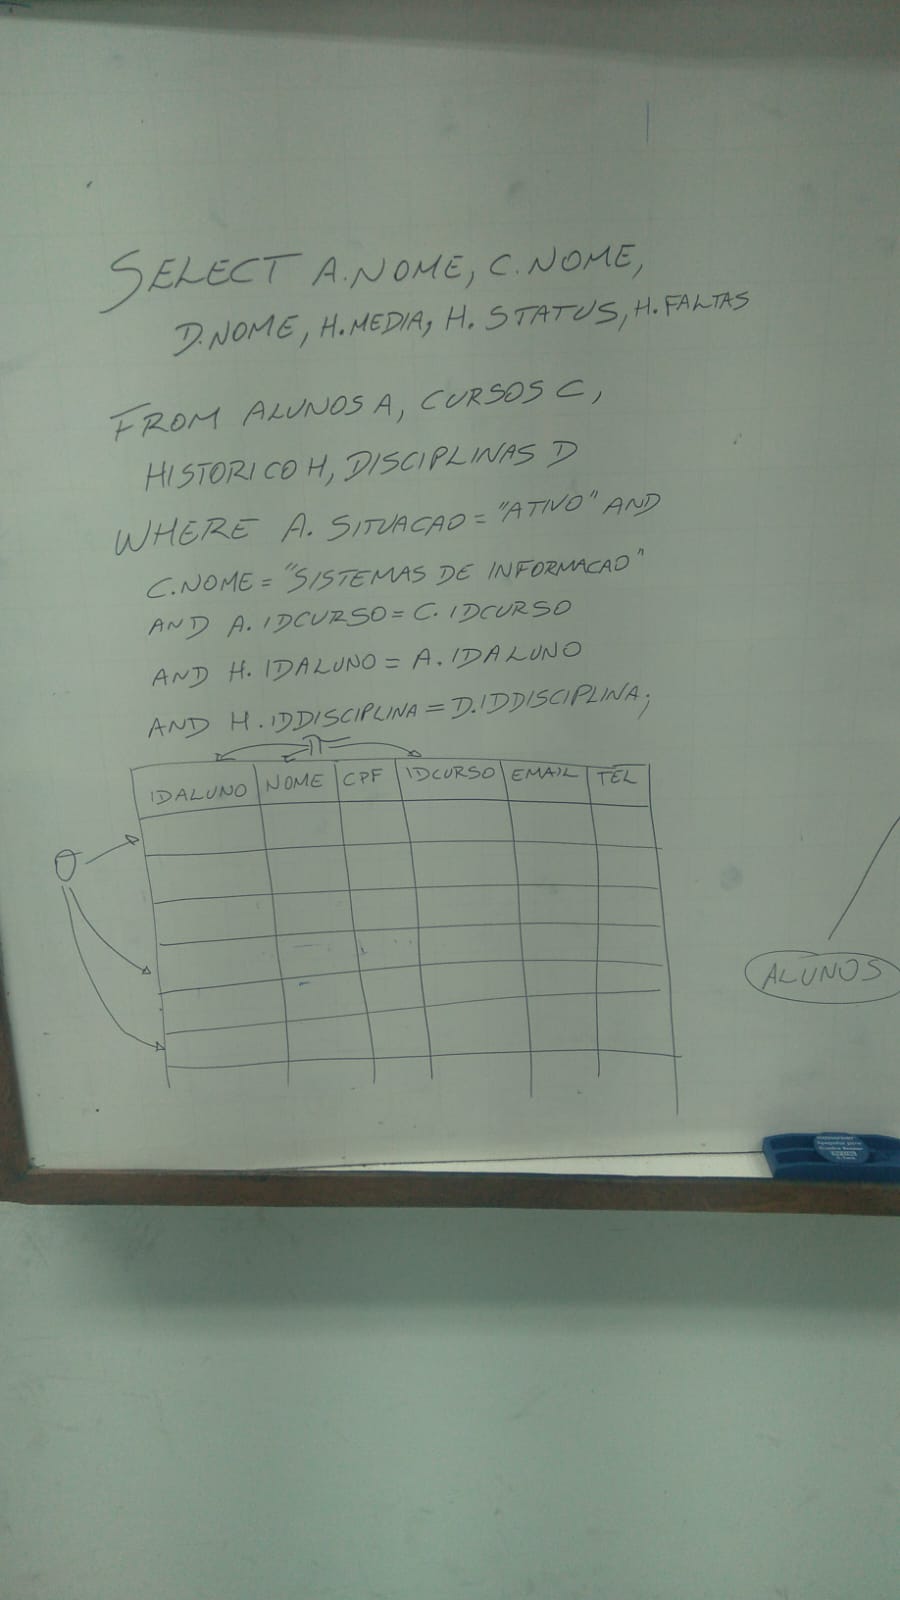 SELECT A.NOME, C.NOME,
D.NOME, H.MEDIA, H. STATUS, H.FALTAS
FROM ALUNOS A, CURSOS C,
HISTORICO H, DISCIPLINAS D
WHERE A. SITUACAO = "ATIVO" AND
C.NOME = "SISTEMAS DE INFORMACAO"
AND A. IDCURSO = C. IDCURSO
AND H. IDALUNO = A. IDALUNO
AND H. IDDISCIPLINA = D.IDDISCIPLINA;
π
IDALUNO NOME CPF IDCURSO EMAIL TEL
σ
ALUNOS